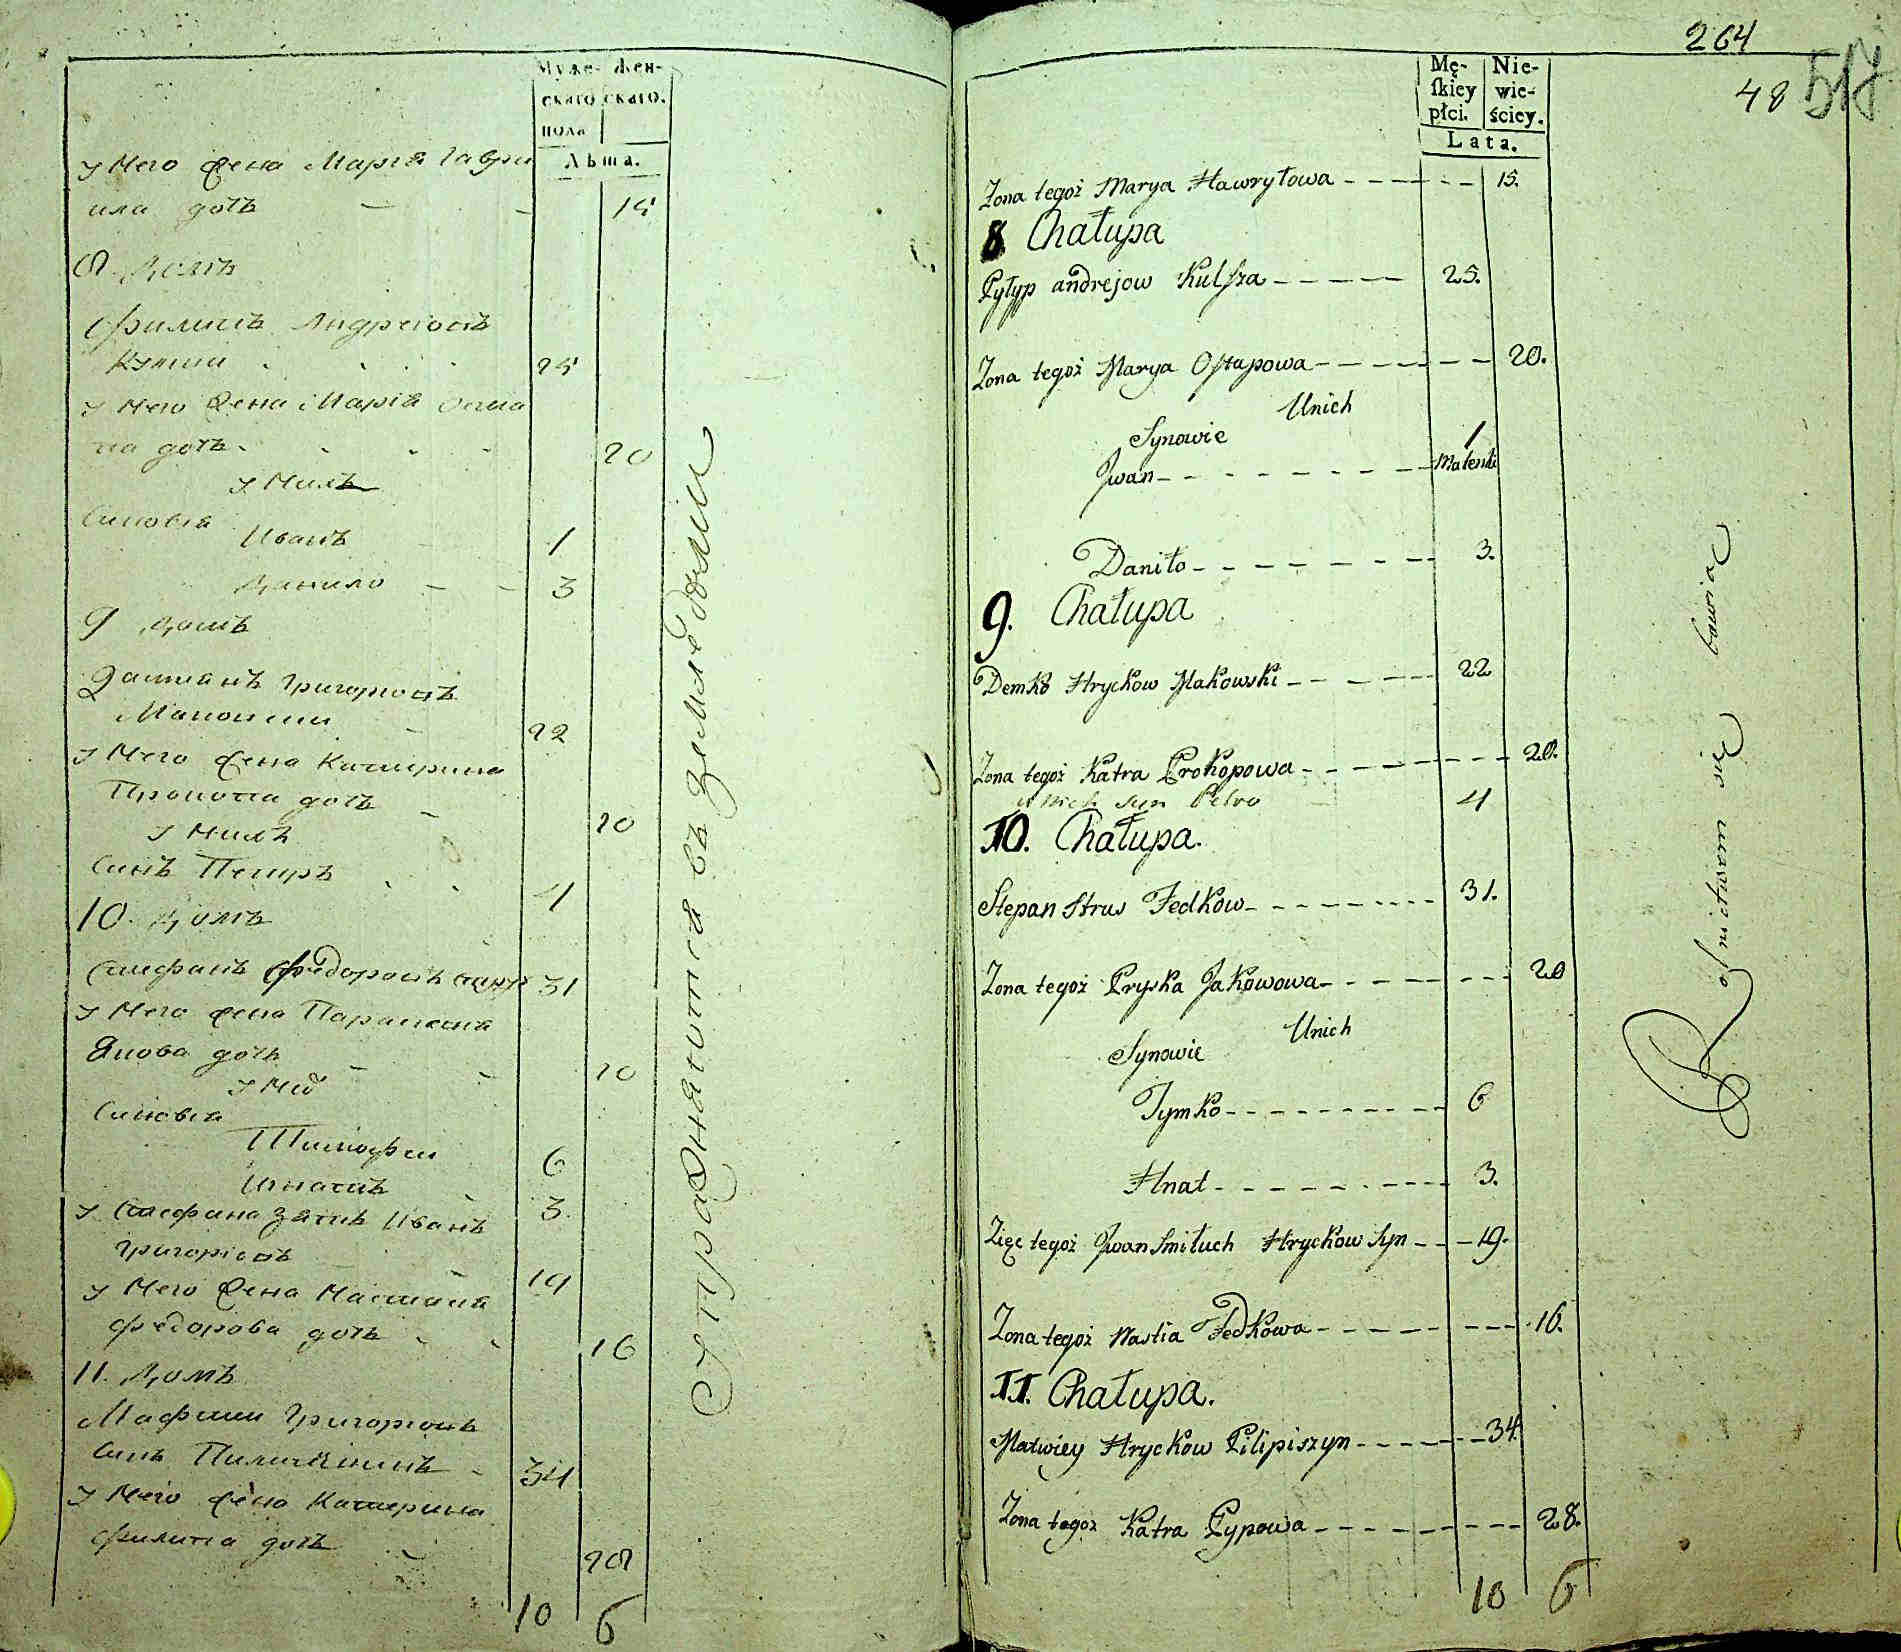 Муже- Жен-
скаго скаго.
пола
Лѣта.
У Него Жена Марія Гаври
ила дочь 15
8. Домъ
Филипъ Андреіовъ
25
У Него Жена Марія Оста
па дочь 20
У Нихъ
Синовья
Иванъ 1
Данило 3
9 Домъ
Дамианъ Григоріовъ
22
У Него Жена Катерина
Прокопа дочь 20
У Нихъ
Синъ Петръ 4
10. Домъ
Стефанъ Федоровъ 31
У Него Жена Параскевія
Якова дочь 20
У Них
Синовья
Тимофеи 6
Игнатъ 3
У Стефана зять Иванъ
Григоріовъ 19
У Него Жена Настасія
Федорова дочь 16
11. Домъ
Матфеи Григоріовъ
Синъ Пилипишинъ 34
У Него Жена Катерина
Филипа дочь 28
10 6
Упражняются въ земледѣліи
264
48 517
Mę- Nie-
skiey wie-
płci. ściey.
Lata.
Żona tegoż Marya Hawryłowa 15.
8. Chałupa
Pyłyp andrejow Kulsza 25.
Żona tegoż Marya Ostapowa 20.
Unich
Synowie 1
Jwan Malenki
Daniło 3.
9. Chałupa
Demko Hryckow Makowski 22
Żona tegoż Katra Prokopowa 20.
u nich syn Petro 4
10. Chałupa.
Stepan Strus Fedkow 31.
Żona tegoż Pryska Jakowowa 20
Unich
Synowie
Tymko 6
Hnat 3.
Zięc tegoż Jwan Smiłuch Hryckow Syn 19.
Żona tegoż Nastia Fedkowa 16.
11. Chałupa.
Matwiey Hryckow Pilipiszyn 34.
Żona tegoż Katra Pypowa 28.
10 6
Rolnictwem się bawią